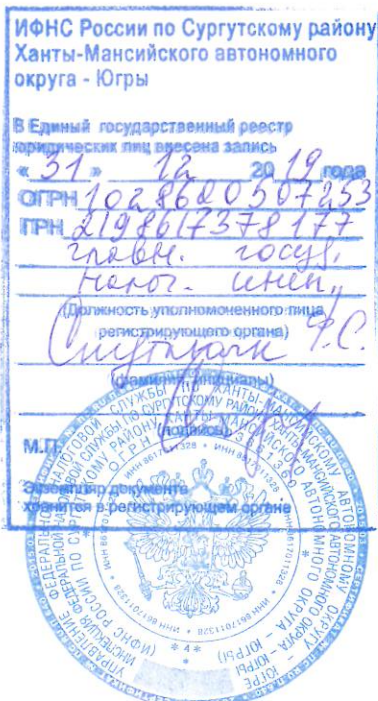 ИФНС России по Сургутскому району
Ханты-Мансийского автономного
округа - Югры
В Единый государственный реестр
юридических лиц внесена запись
« 31 » 12 20 19 года
ОГРН 1028620507253
ГРН 2198617378177
главн. госуд.
налог. инсп.,
(Должность уполномоченного лица
регистрирующего органа)
Ф.С.
(фамилия, инициалы)
(подпись)
М.П.
Экземпляр документа
хранится в регистрирующем органе
ИНН 8617011328
* 4 *
(ИФНС РОССИИ ПО СУРГУТСКОМУ РАЙОНУ ХАНТЫ-МАНСИЙСКОГО АВТОНОМНОГО ОКРУГА - ЮГРЫ)